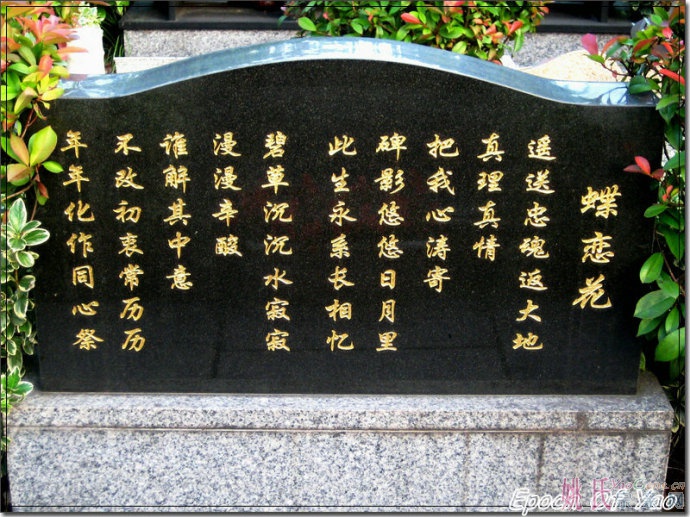 蝶恋花
遥送忠魂返大地
真理真情
把我心涛寄
碑影悠悠日月里
此生永系长相忆
碧草沉沉水寂寂
漫漫辛酸
谁解其中意
不改初衷常历历
年年化作同心祭
Epoch Of Yao